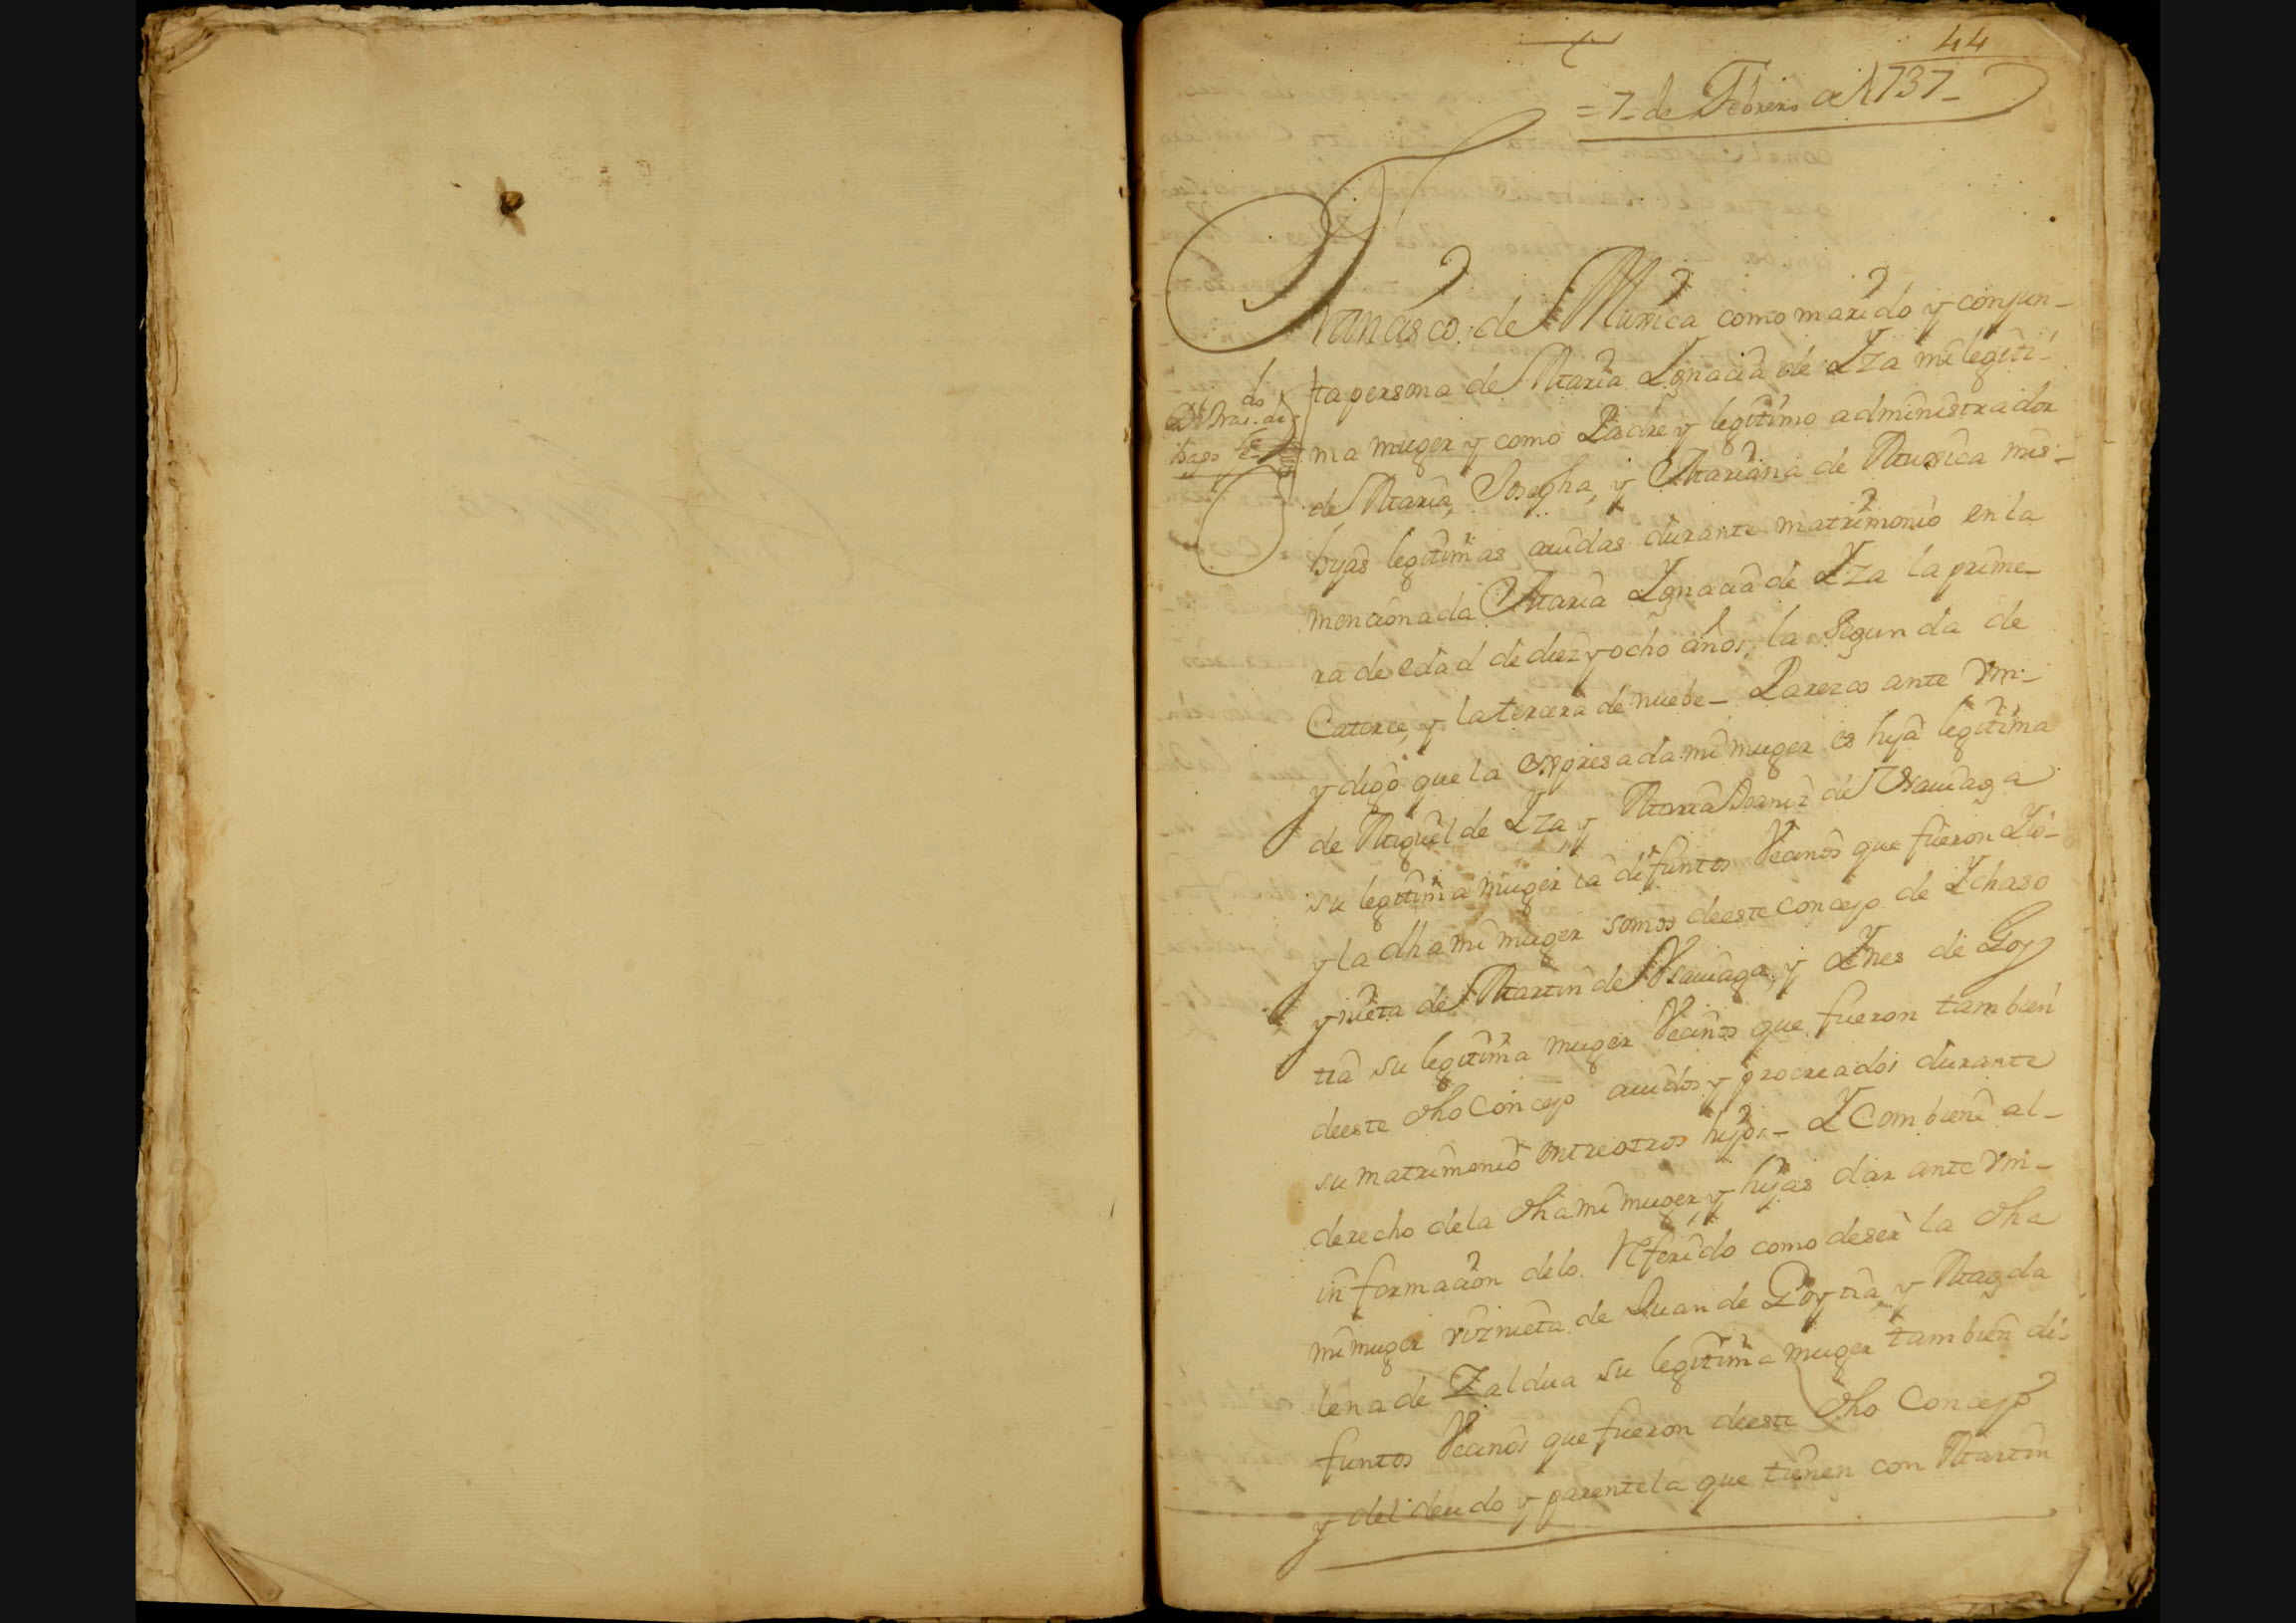 44
= 7 - de Febrero de 1737 -
Francisco de Muxica como marido y conjun-
ta persona de Maria Ygnacia de Yza mi legiti-
ma muger y como Padre y legitimo administrador
de Maria, Josepha, y Mariana de Muxica mis
hijas legitimas auidas durante matrimonio en la
mencionada Maria Ygnacia de Yza la prime-
ra de edad de diez y ocho años, la Segunda de
Catorce, y la tercera de nuebe - Parezco ante Vm
y digo que la expresada mi muger es hija legitima
de Miguel de Yza y Maria de Vsauiaga
su legitima muger ia difuntos Vecinos que fueron Yo
y la dha mi muger somos de este concejo de Ychaso
y nieta de Martin de Vsauiaga, y Ynes de Goy
tia su legitima muger Vecinos que fueron tambien
de este dho Concejo auidos y procreados durante
su matrimonio entre otros hijos - Y Combiene al-
derecho de la dha mi muger y hijas dar ante Vm-
informacion de lo Referido como de ser la dha
mi muger viznieta de Juan de Goytia, y Magda
lena de Zaldua su legitima muger tambien di-
funtos Vecinos que fueron de este dho Concejo
y del deudo y parentela que tienen con Martin
hago fe